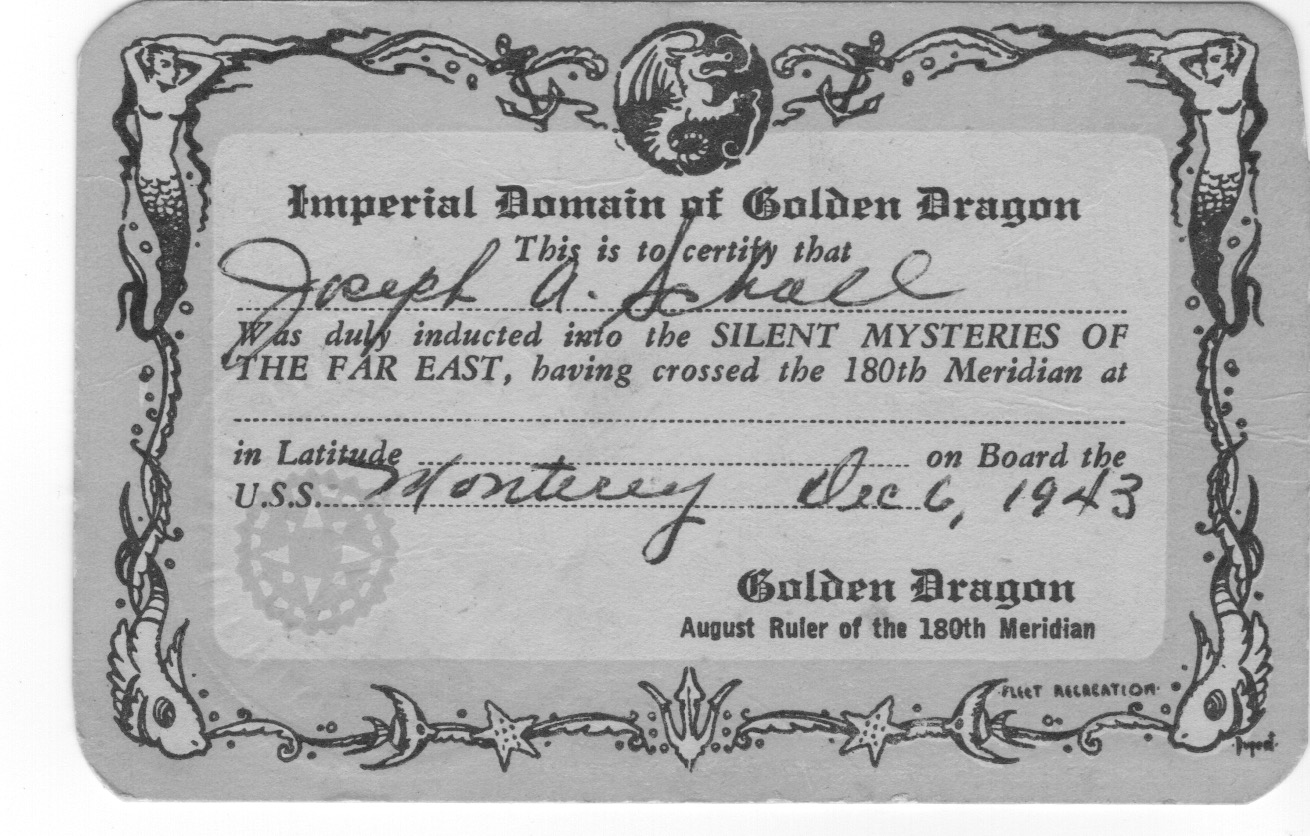 Imperial Domain of Golden Dragon
This is to certify that
Joseph A. Schall
Was duly inducted into the SILENT MYSTERIES OF
THE FAR EAST, having crossed the 180th Meridian at
in Latitude on Board the
U.S.S. Monterey Dec 6, 1943
Golden Dragon
August Ruler of the 180th Meridian
FLEET RECREATION